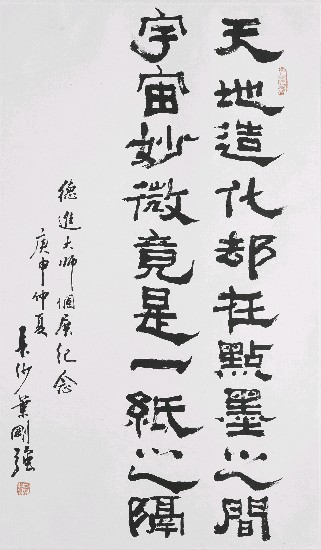 天地造化却在點墨之間
宇宙妙微竟是一紙之隔
德進大師個展纪念
庚申仲夏
長沙葉剛強